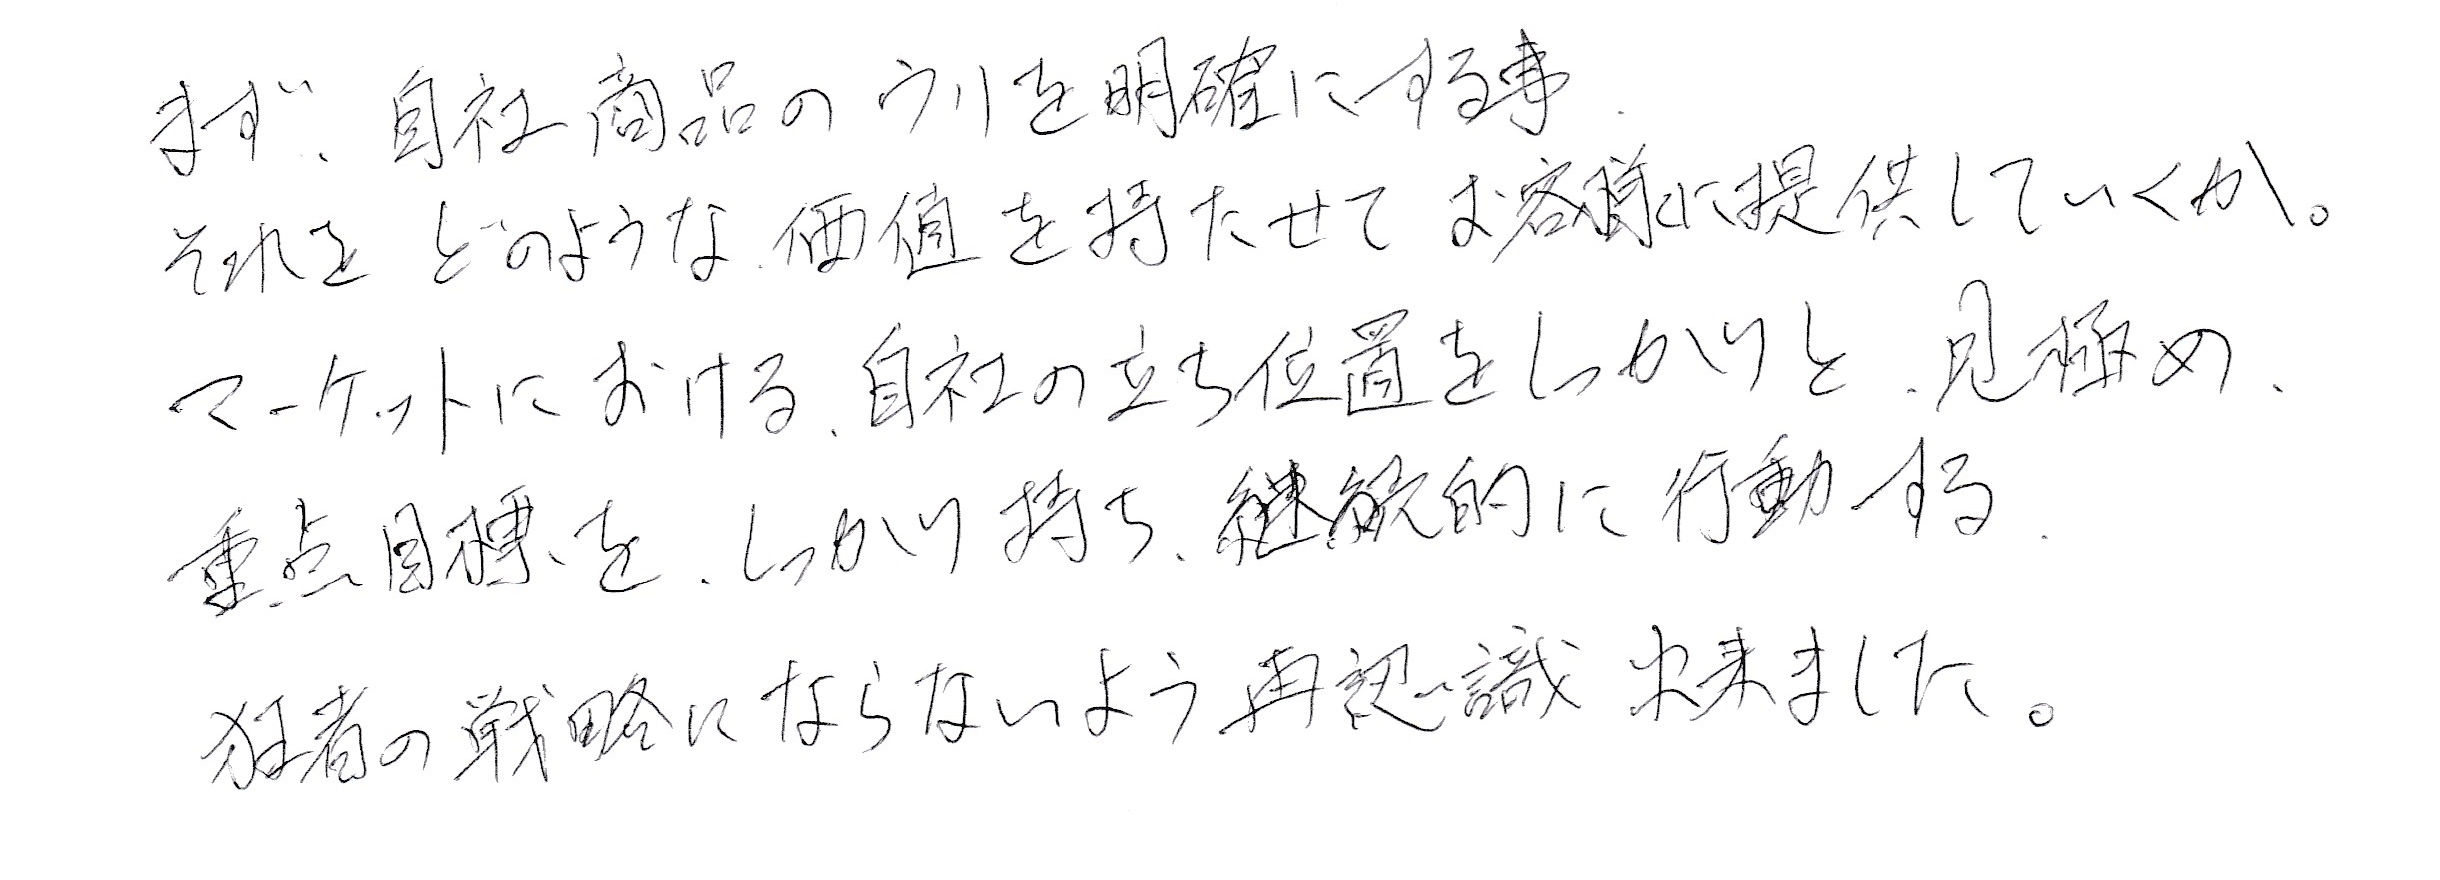 まず、自社商品のウリを明確にする事、
それをどのような、価値を持たせてお客様に提供していくか。
マーケットにおける、自社の立ち位置をしっかりと、見極め、
重点目標を、しっかり持ち、継続的に行動する、
狂者の戦略にならないよう再認識出来ました。